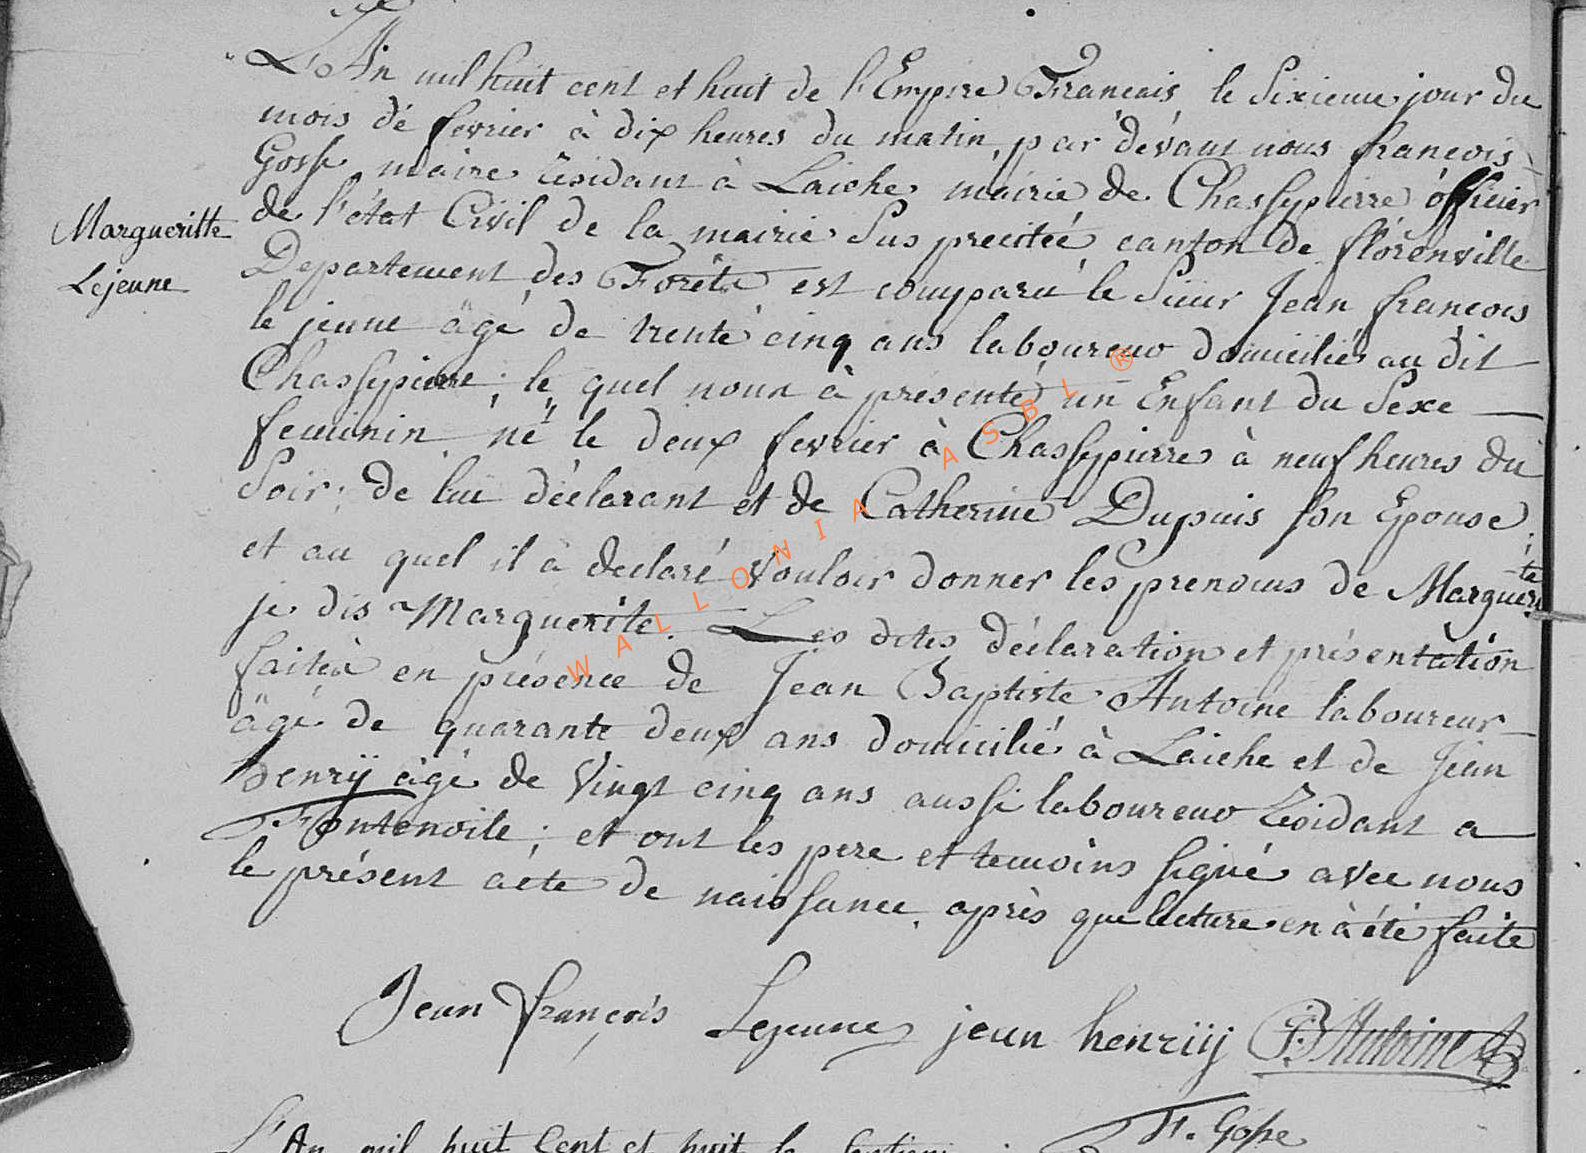 L'An mil huit cent et huit de l'Empire Francais le Sixieme jour du
mois de fevrier à dix heures du matin, par devant nous francois
Gosse maire résidant à Laiche mairie de Chassepierre officier
de l'état Civil de la mairie Sus précitée canton de florenville
Departement des Forêts est comparu le Sieur Jean francois
le jeune âgé de trente cinq ans laboureur domicilié au dit
Chassepierre; le quel nous à présenté un Enfant du Sexe
feminin né le deux fevrier à Chassepierre à neuf heures du
Soir; de lui déclarant et de Catherine Dupuis son Epouse;
et au quel il à declaré vouloir donner les prenoms de Marguerite
je dis Marguerite. Les dites déclaration et présentation
faites en présence de Jean Baptiste Antoine laboureur
âgé de quarante deux ans domicilié à Laiche et de Jean
henrÿ âgé de Vingt cinq ans aussi laboureur résidant a
Fontenoile; et ont les pere et temoins signé avec nous
le présent acte de naissance, après que lecture en à été faite
Margueritte
Lejeune
Jean françois Lejeune jean henriÿ JB Antoine
F. Gosse
L'An mil huit Cent et huit le Septieme
WALLONIA ASBL ®